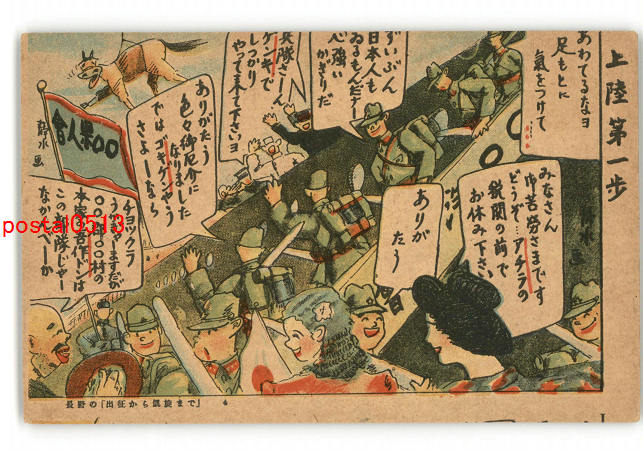 上陸第一歩
あわてるなヨ
足もとに
氣をつけて
ずいぶん
日本人も
ゐるもんだナー
心強い
かぎりだ
兵隊さーん
ゲンキで
しつかり
やつて來て下さいヨ
ありがたう
色々御厄介に
なりました
では ゴキゲンやう
さよーなら
みなさん
御苦勞さまです
どうぞ…アチラの
税関の前で
お休み下さい
ありが
たう
○○県人会
チヨツクラ
うかゞいますだが
○○県○○村の
本橋吉作ドンは
この部隊じやー
なかんべーか
長野の「出征から凱旋まで」 4
postal0513